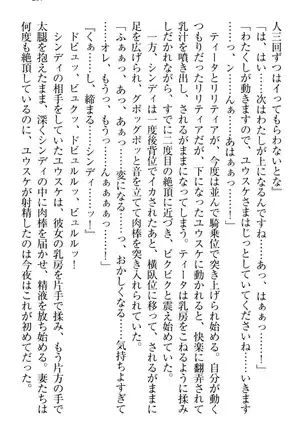 人三回ずつイってもらわないとな」
「は、はい……次はわたしが上になるんですね……あっ、はぁぁっ……！」
「わたくしが動きますので、ユウスケさまはじっとしていてくださいね……いきます
っ……ン、んぁぁっ……あはぁぁっ……！」
　ティータとリリティアが、今度は並んで騎乗位で突き上げられ始める。自分が動く
つもりだったリリティアだが、下になったユウスケに動かれると、快楽に翻弄されて
乳汁を噴き出され、されるがままになってしまう。ティータは乳房を下から揉み
しだかれながら、すぐに二度目の絶頂に近づき、ビクビクと震え始めていた。
　一方、シンディは一度後背位でイカされたあと、横臥位に移って、されるがままに
足を広げられ、グポッグポッと音を立てて肉棒を突き入れられていた。
「ふぁぁっ、あっ、あぁっ……変になる……っ、おかしくなる……気持ちよすぎて
……オレ、もうっ、もうっ……んぁぁぁぁっ……！」
『くぁっ……し、締まる……シンディ……ッ！』
　ドビュッ、ビュクッ、ドビュルルッ、ビュルルッ！
　シンディの相手をしていたユウスケは、彼女の乳房を片手で揉み、もう片方の手で
太腿を抱え込んだまま、深くシンディの中に肉棒を届かせ、精液を放ち始める。妻たちは
何度も絶頂しているのに、ユウスケが射精したのは今夜はこれが初めてだった。